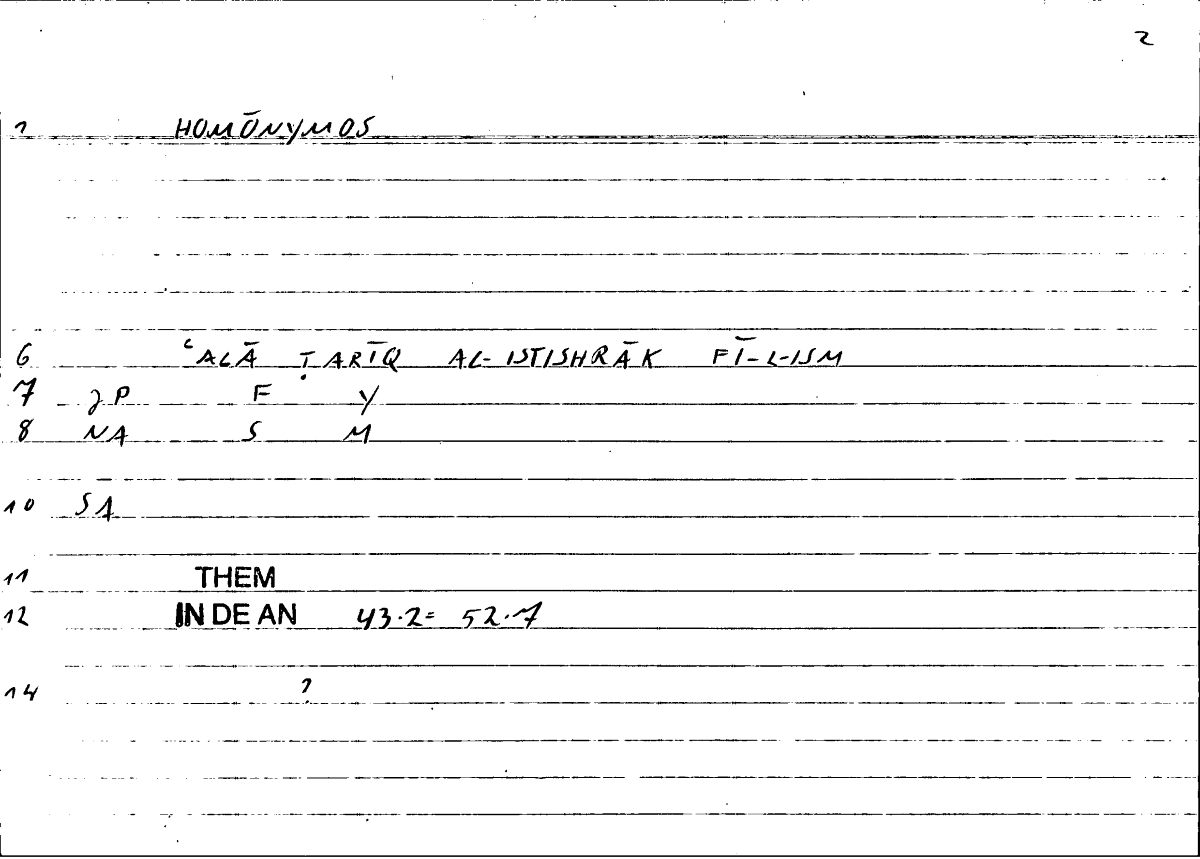 2
1 HOMŌNYMOS
6 ʿALĀ ṬARĪQ AL-ISTISHRĀK FĪ-L-ISM
7 ȜP F Y
8 NA S M
10 SA
11 THEM
12 IN DE AN 43.2= 52.7
14 ?